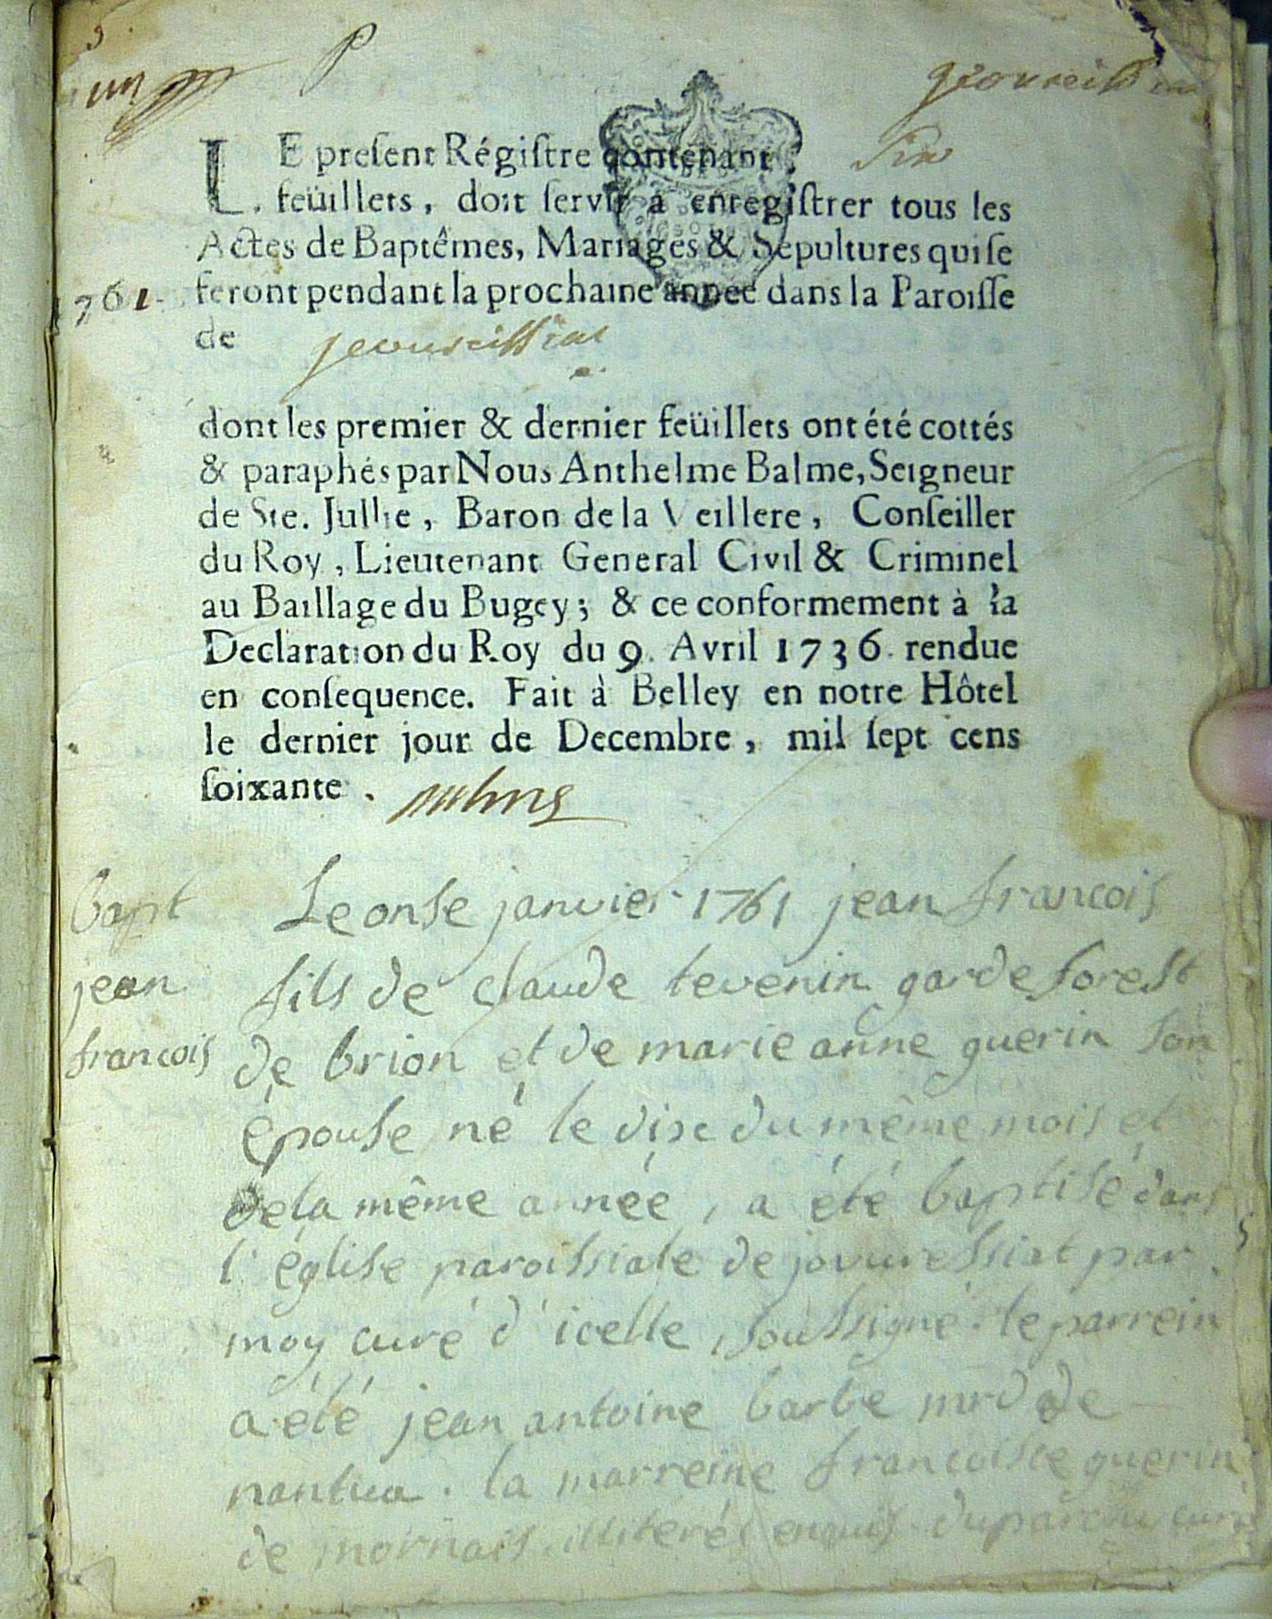 un
P
LE present Régistre contenant
six
feüillets, doit servir à enregistrer tous les
Actes de Baptêmes, Mariages & Sepultures qui se
1761 feront pendant la prochaine année dans la Paroisse
de
dont les premier & dernier feüillets ont été cottés
& paraphés par Nous Anthelme Balme, Seigneur
de Ste. Jullie, Baron de la Veillere, Conseiller
du Roy, Lieutenant General Civil & Criminel
au Baillage du Bugey; & ce conformement à la
Declaration du Roy du 9. Avril 1736. rendue
en consequence. Fait à Belley en notre Hôtel
le dernier jour de Decembre, mil sept cens
soixante.
bapt
jean
francois
Le onse janvier 1761 jean francois
fils de claude tevenin garde forest
de brion et de marie anne guerin son
épouse né le dix du même mois et
de la même année, a été baptisé dans
l'église paroissiale de jovuressiat par
moy curé d'icelle, soussigné. le parrein
a été jean antoine barbe mrd de
nantua. la marreine francoise guerin
de mornais. illiterés enquis. duparchy curé